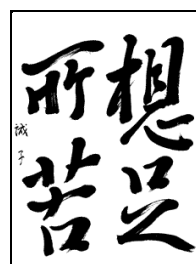 想足
所苦
誠子